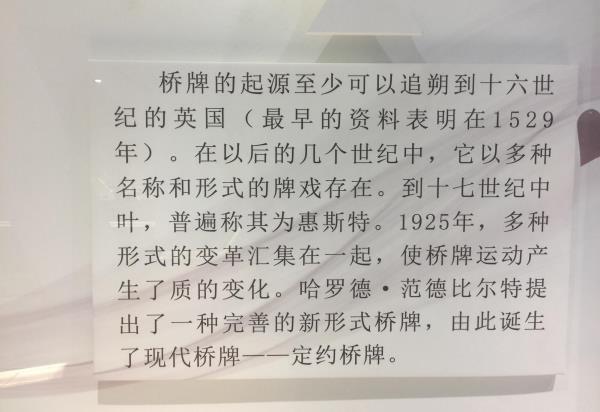 桥牌的起源至少可以追朔到十六世
纪的英国（最早的资料表明在1529
年）。在以后的几个世纪中，它以多种
名称和形式的牌戏存在。到十七世纪中
叶，普遍称其为惠斯特。1925年，多种
形式的变革汇集在一起，使桥牌运动产
生了质的变化。哈罗德·范德比尔特提
出了一种完善的新形式桥牌，由此诞生
了现代桥牌——定约桥牌。